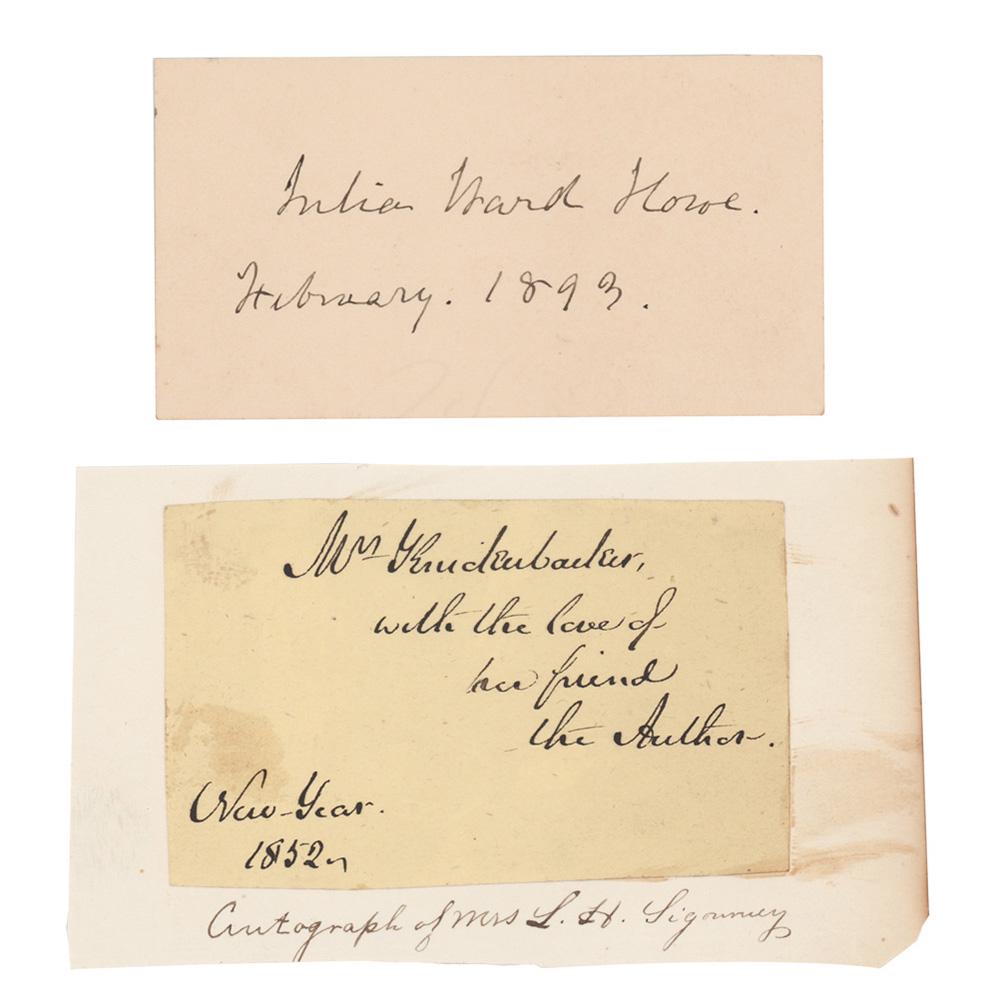 Julia Ward Howe.
February. 1893.
Mrs Knickenbacker,
with the love of
her friend
the Author.
New-Year.
1852
Autograph of Mrs L. H. Sigourney